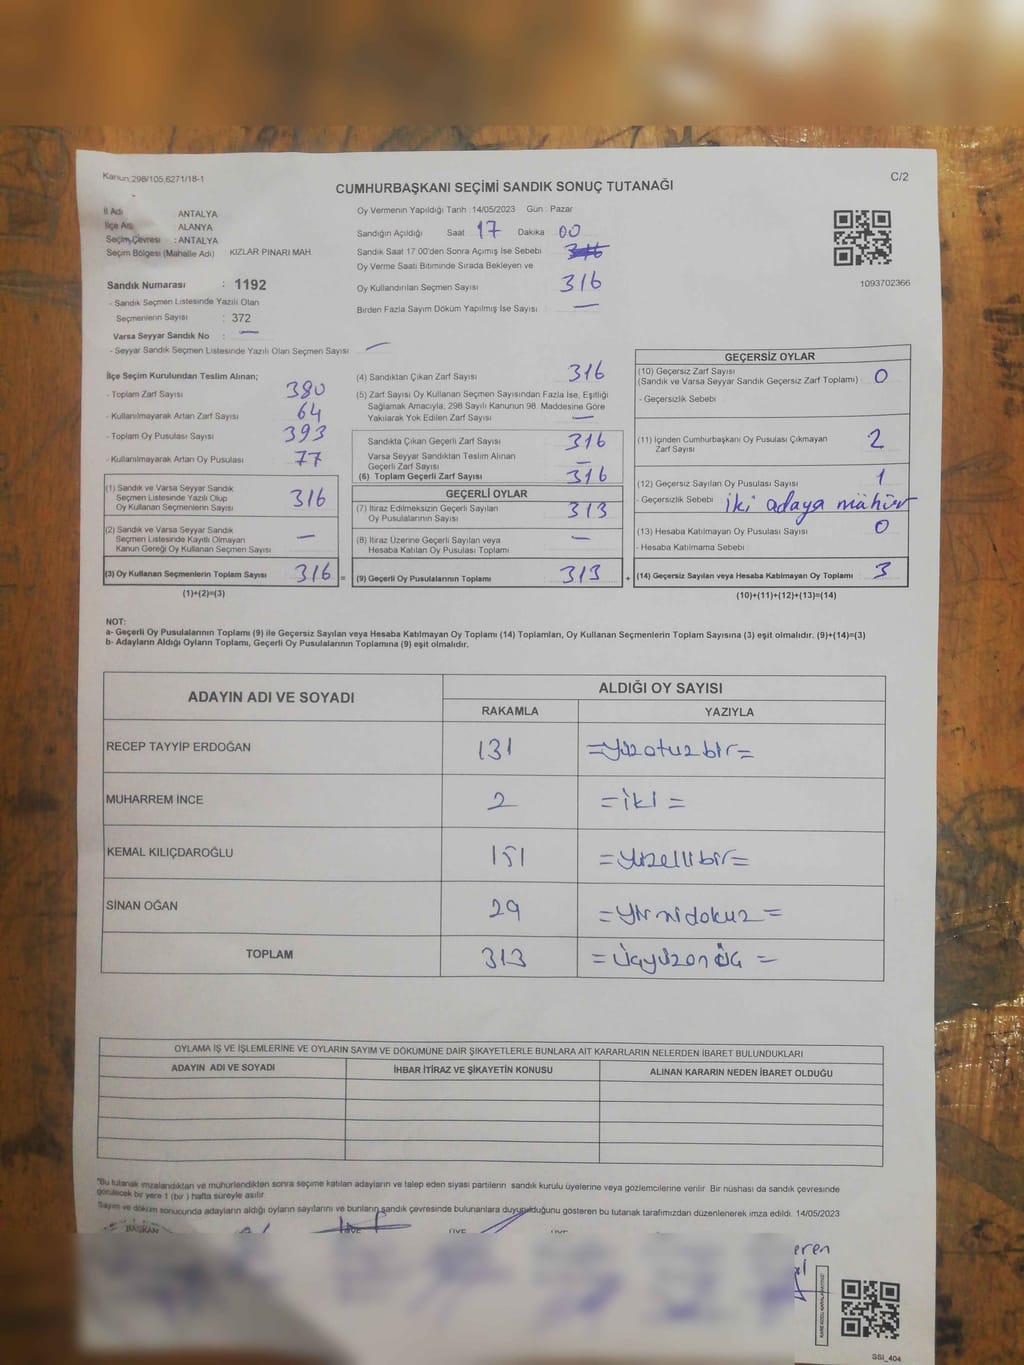 Kanun:298/105,6271/18-1
C/2
CUMHURBAŞKANI SEÇİMİ SANDIK SONUÇ TUTANAĞI
İl Adı ANTALYA
İlçe Adı ALANYA
Seçim Çevresi : ANTALYA
Seçim Bölgesi (Mahalle Adı) KIZLAR PINARI MAH.
Oy Vermenin Yapıldığı Tarih :14/05/2023 Gün : Pazar
Sandığın Açıldığı Saat 17 Dakika 00
Sandık Saat 17:00'den Sonra Açımış İse Sebebi
Oy Verme Saati Bitiminde Sırada Bekleyen ve
Oy Kullandırılan Seçmen Sayısı 316
Birden Fazla Sayım Döküm Yapılmış İse Sayısı : —
1093702366
Sandık Numarası : 1192
- Sandık Seçmen Listesinde Yazılı Olan
Seçmenlerin Sayısı : 372
Varsa Seyyar Sandık No : —
- Seyyar Sandık Seçmen Listesinde Yazılı Olan Seçmen Sayısı —
İlçe Seçim Kurulundan Teslim Alınan;
- Toplam Zarf Sayısı 380
- Kullanılmayarak Artan Zarf Sayısı 64
- Toplam Oy Pusulası Sayısı 393
- Kullanılmayarak Artan Oy Pusulası 77
(1) Sandık ve Varsa Seyyar Sandık
Seçmen Listesinde Yazılı Olup
Oy Kullanan Seçmenlerin Sayısı 316
(2) Sandık ve Varsa Seyyar Sandık
Seçmen Listesinde Kayıtlı Olmayan
Kanun Gereği Oy Kullanan Seçmen Sayısı —
(3) Oy Kullanan Seçmenlerin Toplam Sayısı 316 =
(1)+(2)=(3)
(4) Sandıktan Çıkan Zarf Sayısı 316
(5) Zarf Sayısı Oy Kullanan Seçmen Sayısından Fazla İse, Eşitliği
Sağlamak Amacıyla; 298 Sayılı Kanunun 98. Maddesine Göre
Yakılarak Yok Edilen Zarf Sayısı —
Sandıkta Çıkan Geçerli Zarf Sayısı 316
Varsa Seyyar Sandıktan Teslim Alınan
Geçerli Zarf Sayısı —
(6) Toplam Geçerli Zarf Sayısı 316
GEÇERLİ OYLAR
(7) İtiraz Edilmeksizin Geçerli Sayılan
Oy Pusulalarının Sayısı 313
(8) İtiraz Üzerine Geçerli Sayılan veya
Hesaba Katılan Oy Pusulası Toplamı —
(9) Geçerli Oy Pusulalarının Toplamı 313 +
GEÇERSİZ OYLAR
(10) Geçersiz Zarf Sayısı 0
(Sandık ve Varsa Seyyar Sandık Geçersiz Zarf Toplamı)
- Geçersizlik Sebebi
(11) İçinden Cumhurbaşkanı Oy Pusulası Çıkmayan
Zarf Sayısı 2
(12) Geçersiz Sayılan Oy Pusulası Sayısı 1
- Geçersizlik Sebebi iki adaya mühür
(13) Hesaba Katılmayan Oy Pusulası Sayısı 0
- Hesaba Katılmama Sebebi
(14) Geçersiz Sayılan veya Hesaba Katılmayan Oy Toplamı 3
(10)+(11)+(12)+(13)=(14)
NOT:
a- Geçerli Oy Pusulalarının Toplamı (9) ile Geçersiz Sayılan veya Hesaba Katılmayan Oy Toplamı (14) Toplamları, Oy Kullanan Seçmenlerin Toplam Sayısına (3) eşit olmalıdır. (9)+(14)=(3)
b- Adayların Aldığı Oyların Toplamı, Geçerli Oy Pusulalarının Toplamına (9) eşit olmalıdır.
ADAYIN ADI VE SOYADI
ALDIĞI OY SAYISI
RAKAMLA YAZIYLA
RECEP TAYYİP ERDOĞAN 131 =yüzotuzbir=
MUHARREM İNCE 2 =iki=
KEMAL KILIÇDAROĞLU 151 =yüzellibir=
SİNAN OĞAN 29 =yirmidokuz=
TOPLAM 313 =üçyüzonüç=
OYLAMA İŞ VE İŞLEMLERİNE VE OYLARIN SAYIM VE DÖKÜMÜNE DAİR ŞİKAYETLERLE BUNLARA AİT KARARLARIN NELERDEN İBARET BULUNDUKLARI
ADAYIN ADI VE SOYADI İHBAR İTİRAZ VE ŞİKAYETİN KONUSU ALINAN KARARIN NEDEN İBARET OLDUĞU
"Bu tutanak imzalandıktan ve mühürlendikten sonra seçime katılan adayların ve talep eden siyasi partilerin sandık kurulu üyelerine veya gözlemcilerine verilir. Bir nüshası da sandık çevresinde
görülecek bir yere 1 (bir) hafta süreyle asılır.
Sayım ve döküm sonucunda adayların aldığı oyların sayılarını ve bunların sandık çevresinde bulunanlara duyurulduğunu gösteren bu tutanak tarafımızdan düzenlenerek imza edildi. 14/05/2023
BAŞKAN
ÜYE
ÜYE
eren
SSI_404